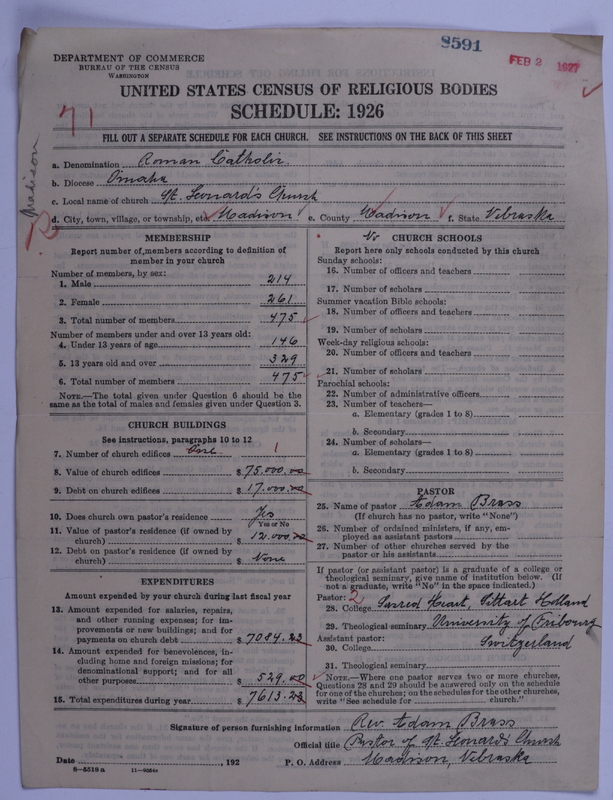 8591
FEB 2 1927
DEPARTMENT OF COMMERCE
BUREAU OF THE CENSUS
WASHINGTON
UNITED STATES CENSUS OF RELIGIOUS BODIES
SCHEDULE: 1926
71
FILL OUT A SEPARATE SCHEDULE FOR EACH CHURCH. SEE INSTRUCTIONS ON THE BACK OF THIS SHEET
Madison
a. Denomination Roman Catholic
b. Diocese Omaha
c. Local name of church St. Leonard's Church
d. City, town, village, or township, etc. Madison e. County Madison f. State Nebraska
MEMBERSHIP
Report number of members according to definition of
member in your church
Number of members, by sex:
1. Male 214
2. Female 261
3. Total number of members 475
Number of members under and over 13 years old:
4. Under 13 years of age 146
5. 13 years old and over 329
6. Total number of members 475
NOTE.—The total given under Question 6 should be
same as the total of males and females given under Question 3.
CHURCH BUILDINGS
See instructions, paragraphs 10 to 12
7. Number of church edifices One 1
8. Value of church edifices $ 75.000.00
9. Debt on church edifices $ 17.000.00
10. Does church own pastor's residence Yes
Yes or No
11. Value of pastor's residence (if owned by
church) $ 12.000.00
12. Debt on pastor's residence (if owned by
church) $ None
EXPENDITURES
Amount expended by your church during last fiscal year
13. Amount expended for salaries, repairs,
and other running expenses; for im-
provements or new buildings; and for
payments on church debt $ 7084.23
14. Amount expended for benevolences, in-
cluding home and foreign missions; for
denominational support; and for all
other purposes $ 529.00
15. Total expenditures during year $ 7613.23
No CHURCH SCHOOLS
Report here only schools conducted by this church
Sunday schools:
16. Number of officers and teachers
17. Number of scholars
Summer vacation Bible schools:
18. Number of officers and teachers
19. Number of scholars
Week-day religious schools:
20. Number of officers and teachers
21. Number of scholars
Parochial schools:
22. Number of administrative officers
23. Number of teachers—
a. Elementary (grades 1 to 8)
b. Secondary
24. Number of scholars—
a. Elementary (grades 1 to 8)
b. Secondary
PASTOR
25. Name of pastor Adam Brass
(If church has no pastor, write "None")
26. Number of ordained ministers, if any, em-
ployed as assistant pastors
27. Number of other churches served by the
pastor or his assistants
If pastor (or assistant pastor) is a graduate of a college or
theological seminary, give name of institution below. (If
not a graduate, write "No" in the space indicated.)
Pastor: 2
28. College Sacred Heart, Sittart Holland
29. Theological seminary University of Fribourg
Assistant pastor:
30. College Switzerland
31. Theological seminary
NOTE.—Where one pastor serves two or more churches,
Questions 28 and 29 should be answered only on the schedule
for one of the churches; on the schedules for the other churches,
write "See schedule for church."
Signature of person furnishing information Rev. Adam Brass
Official title Pastor of St. Leonard's Church
Date , 192 P. O. Address Madison, Nebraska
8—5518a